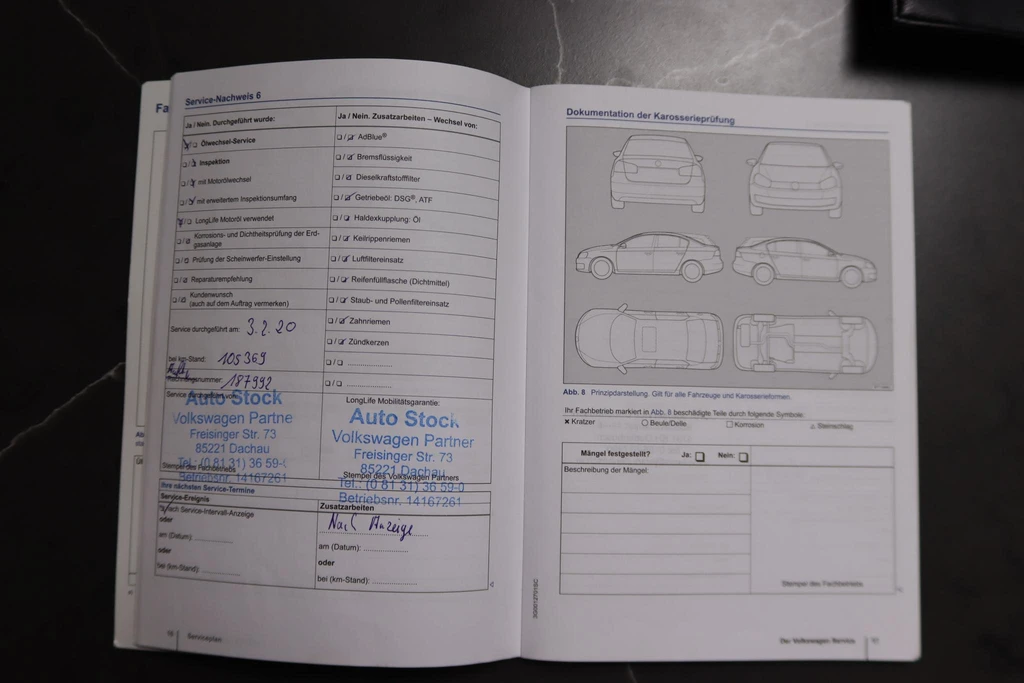 Fa
Service-Nachweis 6
Ja / Nein. Durchgeführt wurde:
Ölwechsel-Service
Inspektion
mit Motorölwechsel
mit erweitertem Inspektionsumfang
LongLife Motoröl verwendet
Korrosions- und Dichtheitsprüfung der Erd-
gasanlage
Prüfung der Scheinwerfer-Einstellung
Reparaturempfehlung
Kundenwunsch
(auch auf dem Auftrag vermerken)
Service durchgeführt am: 3.2.20
bei km-Stand: 105369
187992
Service durchgeführt von:
Auto Stock
Volkswagen Partne
Freisinger Str. 73
85221 Dachau
Tel.: (0 81 31) 36 59-
Stempel des Fachbetriebs
Betriebsnr. 14167261
Ja / Nein. Zusatzarbeiten – Wechsel von:
AdBlue®
Bremsflüssigkeit
Dieselkraftstofffilter
Getriebeöl: DSG®, ATF
Haldexkupplung: Öl
Keilrippenriemen
Luftfiltereinsatz
Reifenfüllflasche (Dichtmittel)
Staub- und Pollenfiltereinsatz
Zahnriemen
Zündkerzen
LongLife Mobilitätsgarantie:
Auto Stock
Volkswagen Partner
Freisinger Str. 73
85221 Dachau
Stempel des Volkswagen Partners
Tel.: (0 81 31) 36 59-0
Betriebsnr. 14167261
Ihre nächsten Service-Termine
Service-Ereignis
nach Service-Intervall-Anzeige
oder
am (Datum):
oder
bei (km-Stand):
Zusatzarbeiten
Nach Anzeige
am (Datum):
oder
bei (km-Stand):
Serviceplan
Dokumentation der Karosserieprüfung
Abb. 8 Prinzipdarstellung. Gilt für alle Fahrzeuge und Karosserieformen.
Ihr Fachbetrieb markiert in Abb. 8 beschädigte Teile durch folgende Symbole:
Kratzer Beule/Delle Korrosion Steinschlag
Mängel festgestellt? Ja: Nein:
Beschreibung der Mängel:
Stempel des Fachbetriebs
Der Volkswagen Service